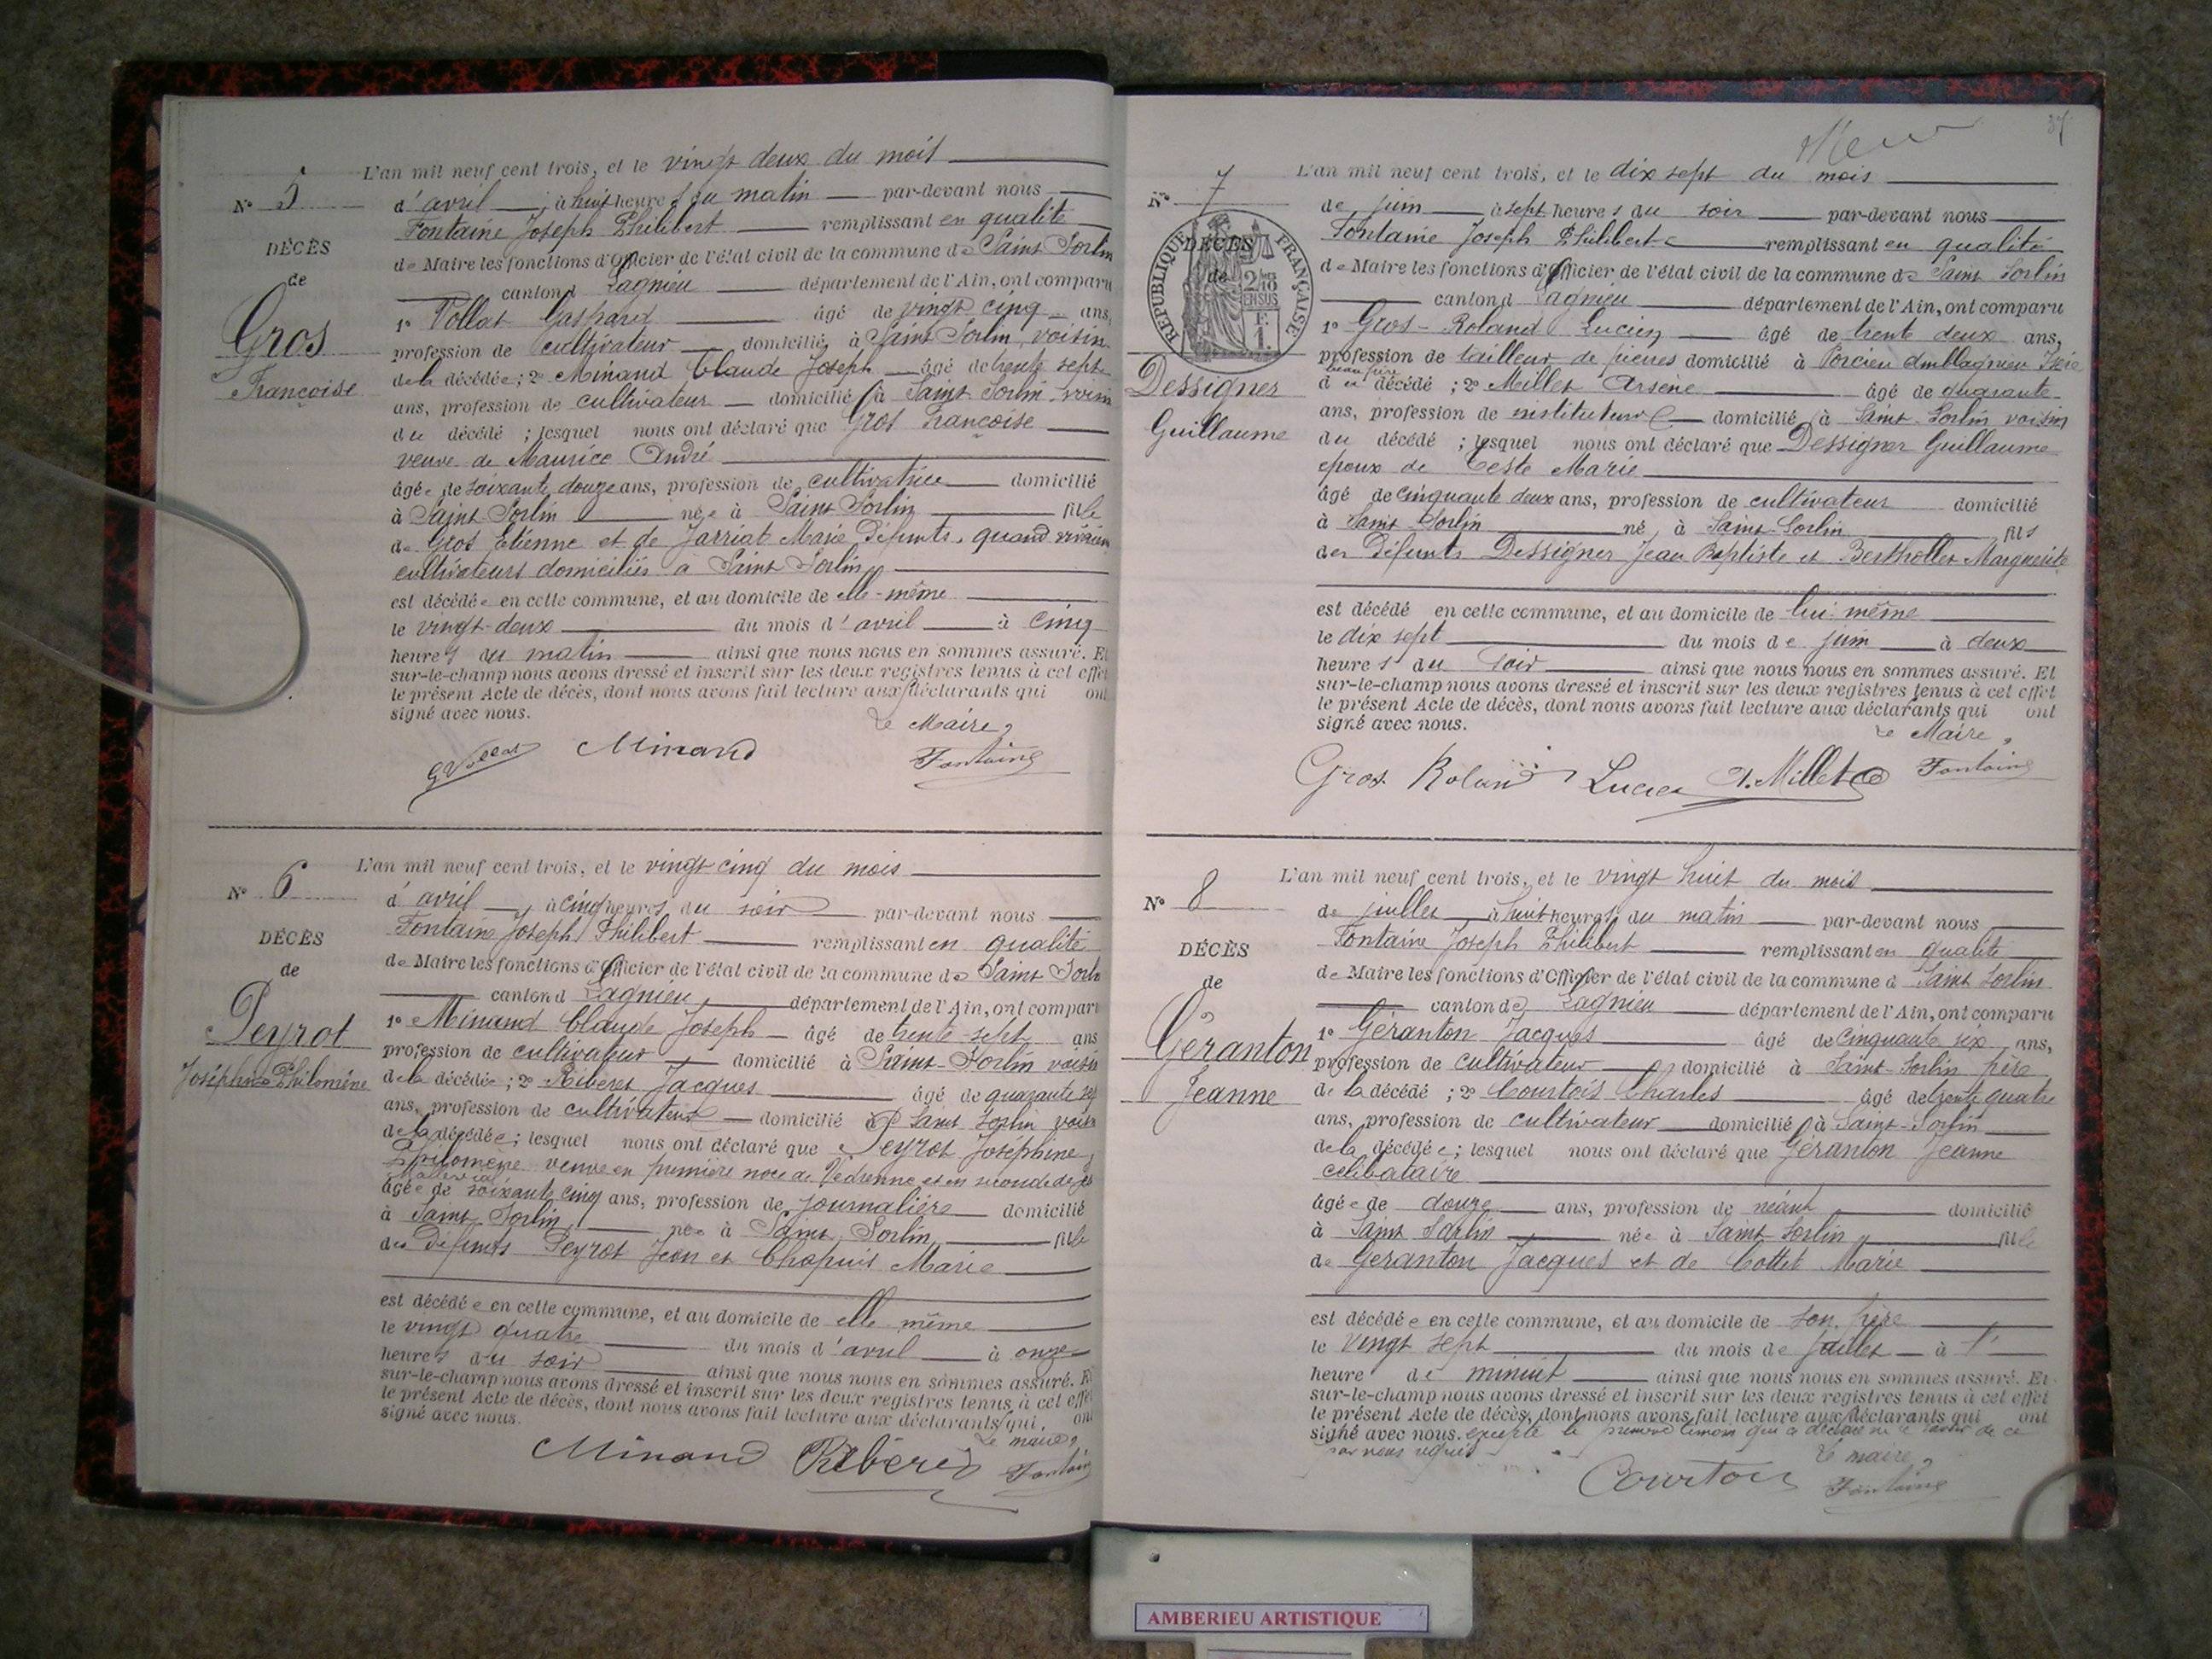 L'an mil neuf cent trois, et le vingt deux du mois
N° 5
d'avril, à huit heures du matin par-devant nous
Fontaine Joseph Philibert remplissant en qualité
DÉCÈS
de Maire les fonctions d'Officier de l'état civil de la commune de Saint Sorlin
de
canton d Lagnieu département de l'Ain, ont comparu
Gros
Françoise
1° Vollat Gaspard âgé de vingt cinq ans,
profession de cultivateur domicilié à Saint Sorlin voisin
de la décédée; 2° Minand Claude Joseph âgé de trente sept
ans, profession de cultivateur domicilié à Saint Sorlin voisin
du décédé; lesquel nous ont déclaré que Gros Françoise
veuve de Maurice André
âgée de soixante douze ans, profession de cultivatrice domicilié
à Saint Sorlin née à Saint Sorlin fille
de Gros Etienne et de Jarriat Marie Défunts, quand vivaient
cultivateurs domiciliés a Saint Sorlin
est décédée en cette commune, et au domicile de elle-même
le vingt-deux du mois d'avril à cinq
heures du matin ainsi que nous nous en sommes assuré. Et
sur-le-champ nous avons dressé et inscrit sur les deux registres tenus à cet effet
le présent Acte de décès, dont nous avons fait lecture aux déclarants qui ont
signé avec nous.
Le Maire,
Minand Fontaine
L'an mil neuf cent trois, et le vingt cinq du mois
N° 6
d'avril, à cinq heures du soir par-devant nous
Fontaine Joseph Philibert remplissant en qualité
DÉCÈS
de Maire les fonctions d'Officier de l'état civil de la commune de Saint Sorlin
de
canton d Lagnieu département de l'Ain, ont comparu
Peyrot
Joséphine Philomène
1° Minand Claude Joseph âgé de trente sept ans
profession de cultivateur domicilié à Saint-Sorlin voisin
de la décédée; 2° Riberet Jacques âgé de quarante
ans, profession de cultivateur domicilié à Saint Sorlin voisin
de la décédée; lesquel nous ont déclaré que Peyrot Joséphine
Philomène veuve en première noce de Vedrenne et en seconde de
âgée de soixante cinq ans, profession de journalière domicilié
à Saint Sorlin née à Saint Sorlin fille
des Défunts Peyrot Jean et Chapuis Marie
est décédée en cette commune, et au domicile de elle même
le vingt quatre du mois d'avril à onze
heures du soir ainsi que nous nous en sommes assuré. Et
sur-le-champ nous avons dressé et inscrit sur les deux registres tenus à cet effet
le présent Acte de décès, dont nous avons fait lecture aux déclarants qui ont
signé avec nous.
Le maire,
Minand Fontaine
37
L'an mil neuf cent trois, et le dix sept du mois
N° 7
de juin à sept heures du soir par-devant nous
Fontaine Joseph Philibert remplissant en qualité
RÉPUBLIQUE FRANÇAISE
DÉCÈS
de
de Maire les fonctions d'Officier de l'état civil de la commune de Saint Sorlin
canton d Lagnieu département de l'Ain, ont comparu
1° Gros-Roland Lucien âgé de trente deux ans,
profession de tailleur de pierres domicilié à Porcieu Amblagnieu Isère
beau frère
Dessigner
Guillaume
du décédé; 2° Millet Arsène âgé de quarante
ans, profession de instituteur domicilié à Saint-Sorlin voisin
du décédé; lesquel nous ont déclaré que Dessigner Guillaume
époux de Teste Marie
âgé de cinquante deux ans, profession de cultivateur domicilié
à Saint-Sorlin né à Saint-Sorlin fils
des Défunts Dessigner Jean Baptiste et Berthollet Marguerite
est décédé en cette commune, et au domicile de lui même
le dix sept du mois de juin à deux
heures du soir ainsi que nous nous en sommes assuré. Et
sur-le-champ nous avons dressé et inscrit sur les deux registres tenus à cet effet
le présent Acte de décès, dont nous avons fait lecture aux déclarants qui ont
signé avec nous.
Le Maire,
Gros Roland Lucien A. Millet Fontaine
L'an mil neuf cent trois, et le vingt huit du mois
N° 8
de juillet à huit heures du matin par-devant nous
Fontaine Joseph Philibert remplissant en qualité
DÉCÈS
de Maire les fonctions d'Officier de l'état civil de la commune d Saint Sorlin
de
canton de Lagnieu département de l'Ain, ont comparu
Géranton
Jeanne
1° Géranton Jacques âgé de cinquante six ans,
profession de cultivateur domicilié à Saint-Sorlin père
de la décédé; 2° Courtois Charles âgé de trente quatre
ans, profession de cultivateur domicilié à Saint-Sorlin
de la décédée; lesquel nous ont déclaré que Géranton Jeanne
célibataire
âgée de douze ans, profession de néant domicilié
à Saint Sorlin née à Saint-Sorlin fille
de Geranton Jacques et de Cottet Marie
est décédée en cette commune, et au domicile de son père
le vingt sept du mois de juillet à l'
heure de minuit ainsi que nous nous en sommes assuré. Et
sur-le-champ nous avons dressé et inscrit sur les deux registres tenus à cet effet
le présent Acte de décès, dont nous avons fait lecture aux déclarants qui ont
signé avec nous. excepté le premier témoin qui a déclaré ne le savoir de ce
par nous requis
Le maire,
Courtois Fontaine
AMBERIEU ARTISTIQUE